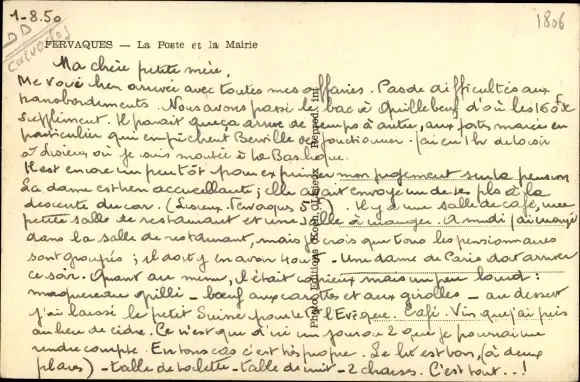 1-8.50
1806
DD
Calvados
FERVAQUES — La Poste et la Mairie
Ma chère petite mère,
Me voici bien arrivée avec toutes mes affaires. Pas de difficultés aux
transbordements. Nous avons passé le bac à Quillebeuf d'où les 160 fr de
supplément. Il paraît que ça arrive de temps à autre, aux fortes marées en
particulier qui empêchent Berville de fonctionner - j'ai eu 1 hr de loisir
à Lisieux où je suis montée à la Basilique.
Il est encore un peu tôt pour exprimer mon jugement sur la pension
La dame est bien accueillante ; elle avait envoyé un de ses à la
descente du car. (Lisieux. Fervaques). Il y a une salle de café, une
petite salle de restaurant et une salle à manger. A midi j'ai mangé
dans la salle de restaurant, mais je crois que tous les pensionnaires
sont groupés ; il doit y en avoir 4 ou 5 - Une dame de Paris doit arriver
ce soir. Quant au menu, il était copieux mais un peu lourd :
maquereau grillé - bœuf aux carottes et aux girolles - au dessert
j'ai laissé le petit Suisse pour l'Evêque. Café. Vin que j'ai pris
au lieu de cidre. Ce n'est que d'ici un jour ou 2 que je pourrai me
rendre compte. En tous cas c'est très propre. Le lit est bon, (à deux
places) - table de toilette - table de nuit - 2 chaises. C'est tout...!
Photo. Editions Lisieux Reprod. int